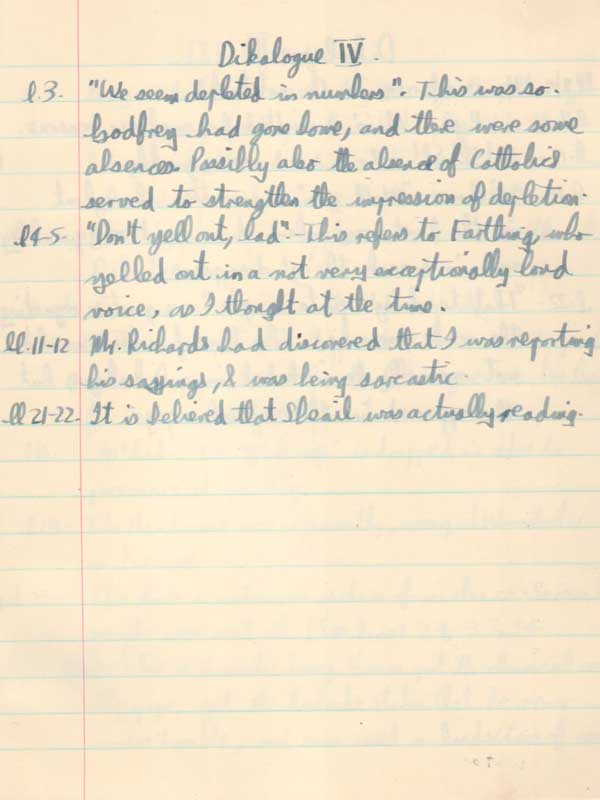 Dikalogue IV.
l.3. "We seem depleted in numbers". This was so.
Godfrey had gone home, and there were some
absences. Possibly also the absence of Catholics
served to strengthen the impression of depletion.
ll4-5. "Don't yell out, lad". This refers to Farthing, who
yelled out in a not very exceptionally loud
voice, as I thought at the time.
ll.11-12 Mr. Richards had discovered that I was reporting
his sayings, & was being sarcastic.
ll 21-22. It is believed that Sheail was actually reading.